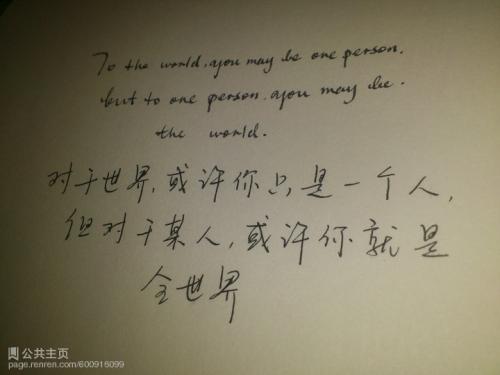 To the world, you may be one person.
but to one person, you may be.
the world.
对于世界,或许你只是一个人,
但对于某人,或许你就是
全世界
公共主页
page.renren.com/600916099